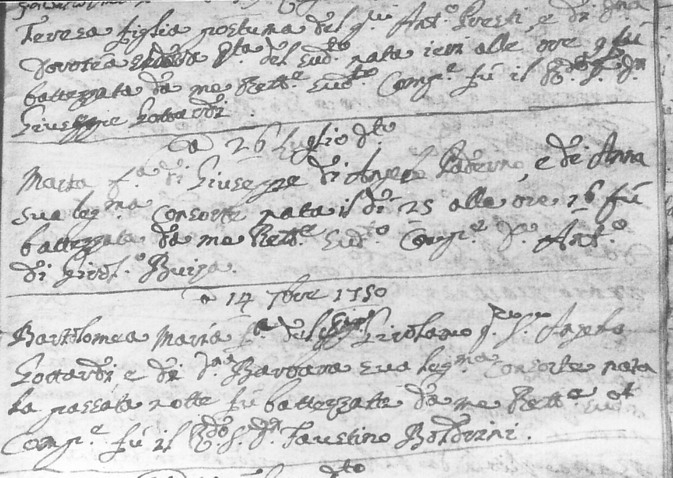 Teresa figlia postuma del q.m Ant.o Presti, e di D.na
Dorotea del sud.to nata ieri alle ore 9 fu
battezzata da me Rett.e Sud.to Comp.e fù il R.do S.r D.n
Giuseppe Gottardi
a 26 Luglio d.to
Marta f.a di Giuseppe di Angelo Paderno, e di Anna
sua leg.ma Consorte nata il dì 25 alle ore 16 fù
battezzata da me Rett.e Sud.to Comp.e Ant.o
di Girol.o Buiza.
a 14 7bre 1750
Bartolomea Maria f.a del Sig.r Girolamo q.m S.r Angelo
Gottardi e di D.na Barbara sua leg.ma Consorte nata
la passata notte fù battezzata da me Rett.e Sud.ot
Comp.e fù il R.do S.r D.n Faustino Boldrini.
d.to